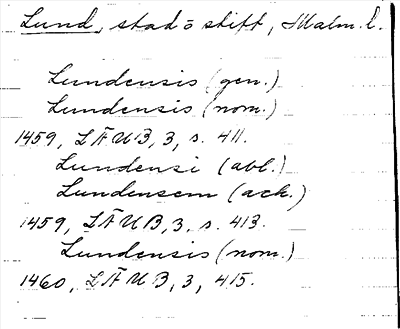 Lund, stad o stift, Malm. l.
Lundensis (gen.)
Lundensis (nom.)
1459, LÄUB, 3, s. 411.
Lundensi (abl.)
Lundensem (ack.)
1459, LÄUB, 3, s. 413.
Lundensis (nom.)
1460, LÄUB, 3, 415.